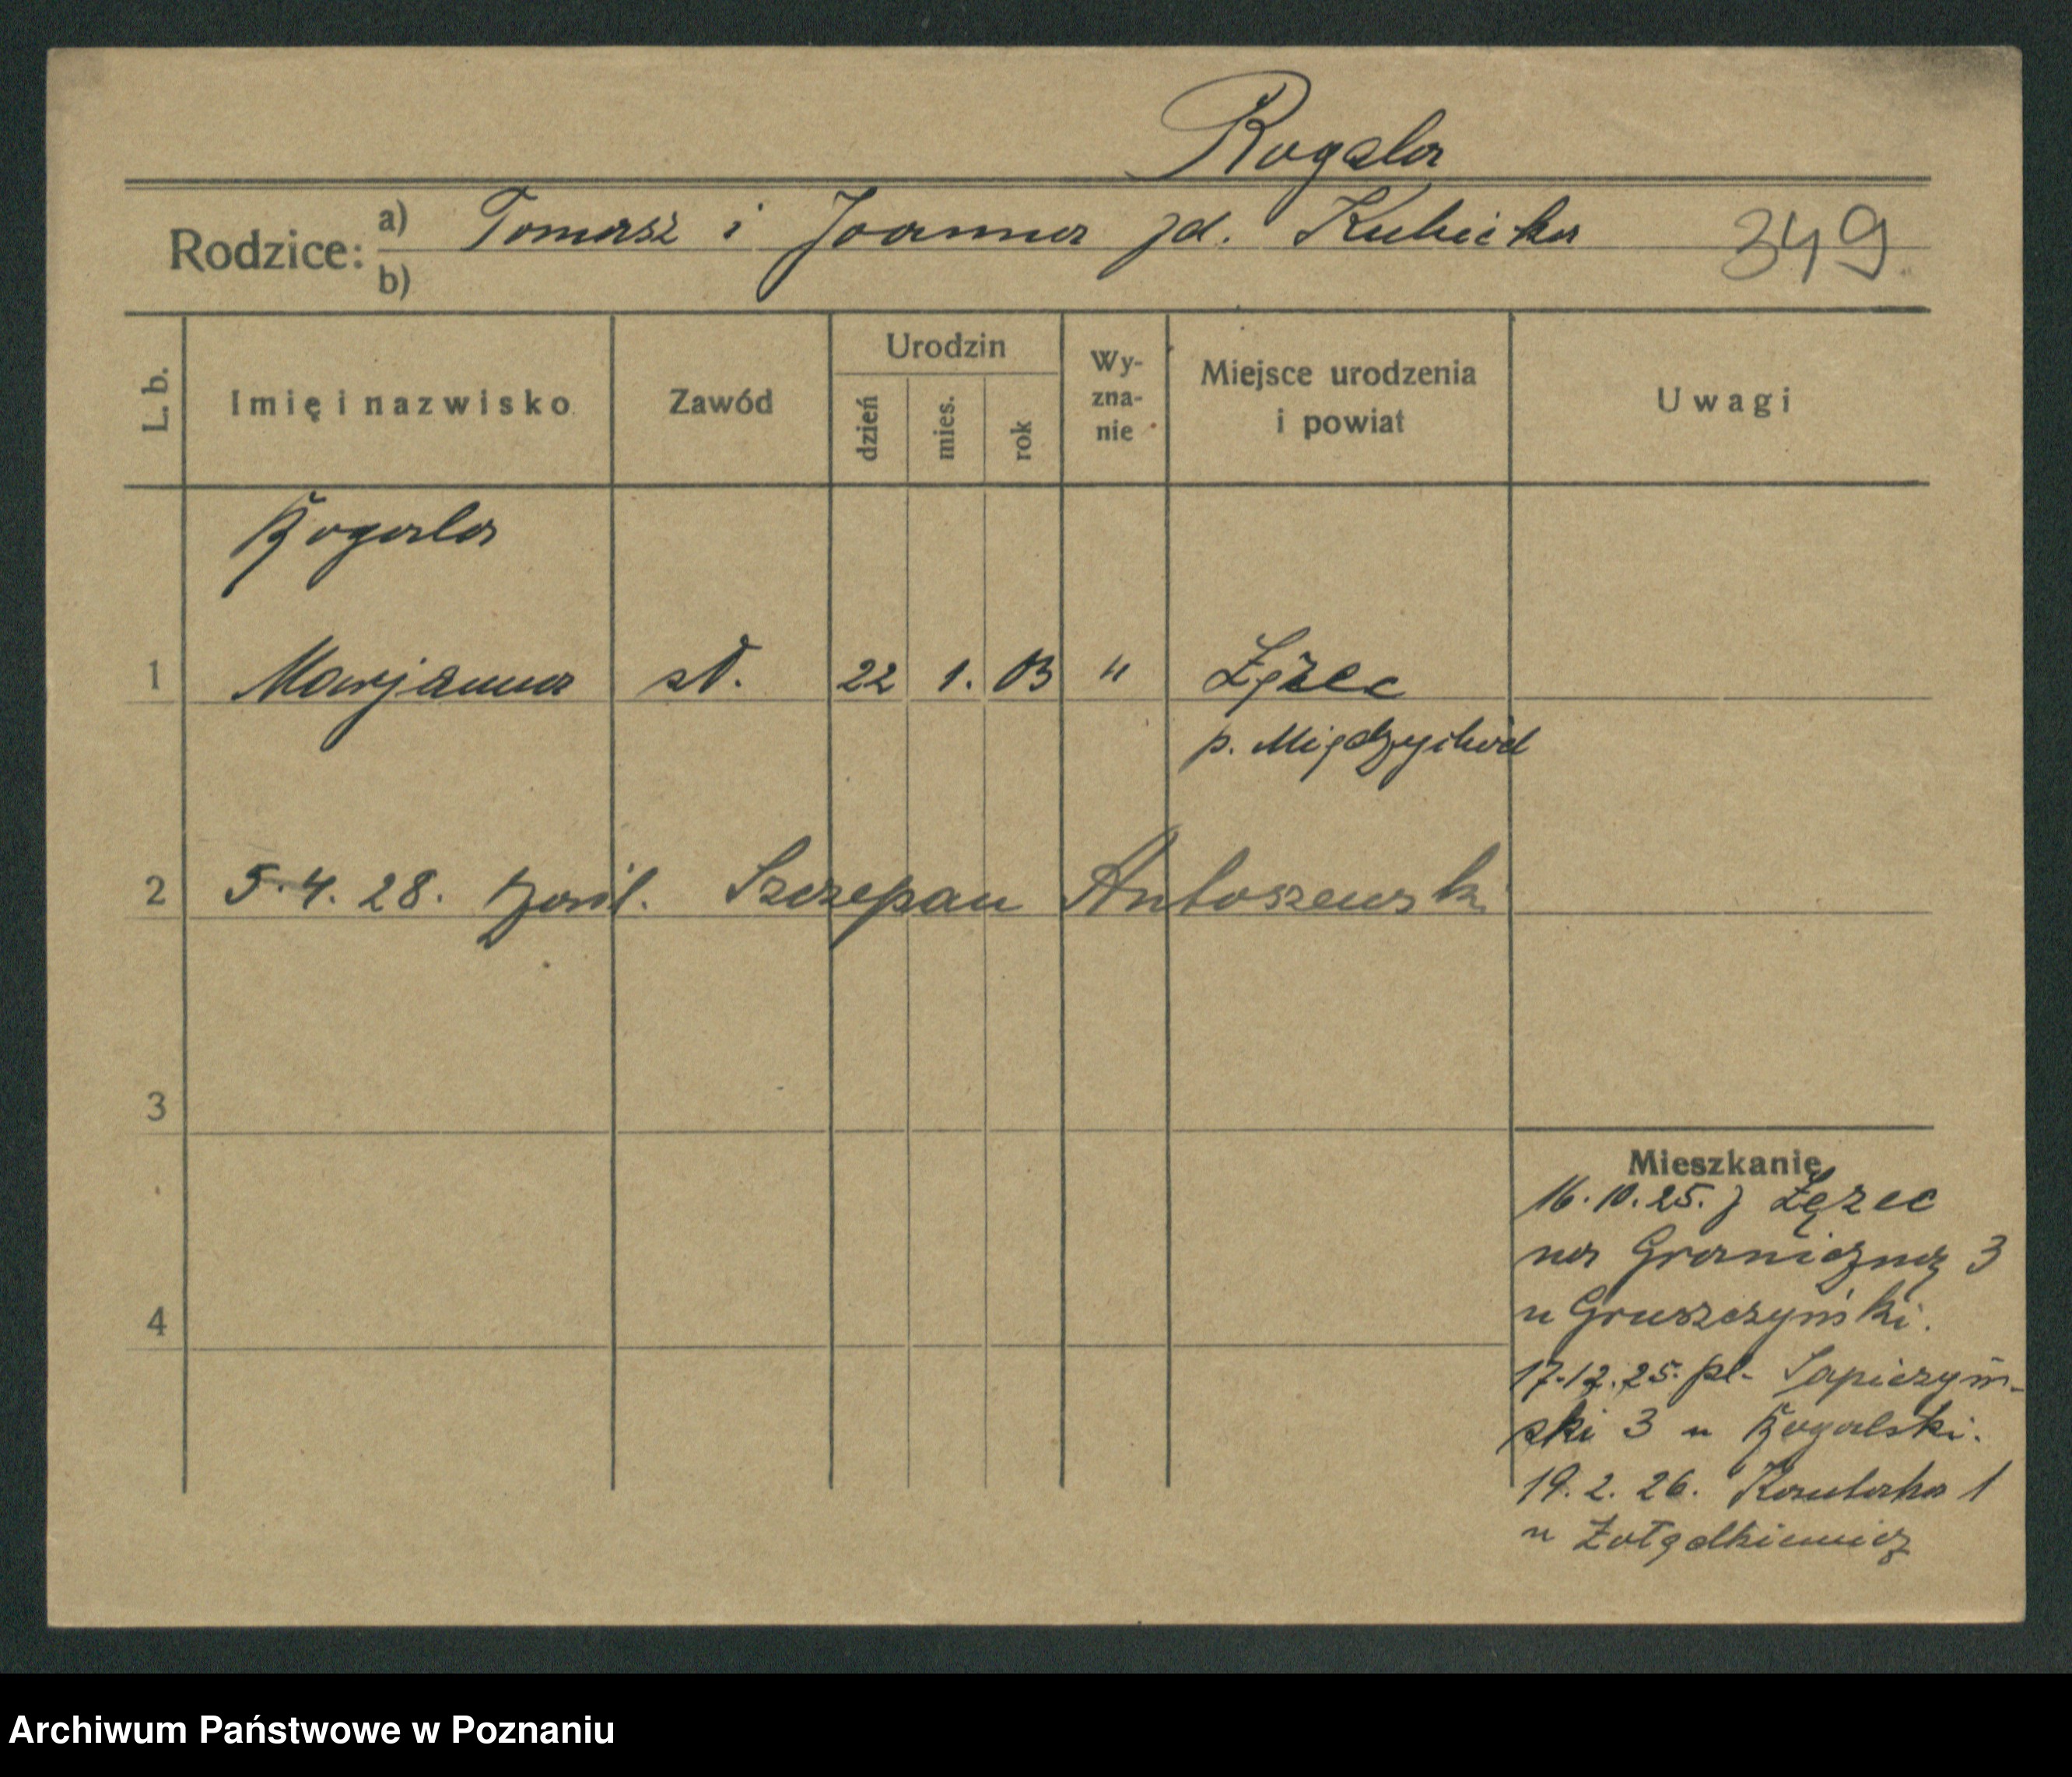 Rogala
Rodzice: a) Tomasz i Joanna zd. Kubicka 349
b)
L. b. Imię i nazwisko Zawód Urodzin dzień mies. rok Wy-zna-nie Miejsce urodzenia i powiat Uwagi
Rogala
1 Marjanna sł. 22 1. 03 " Łężec
p. Międzychód
2 5.4.28. Szczepan Antoszewski
3
Mieszkanie
16.10.25. z Łężec
na Graniczną 3
u Gruszczyński.
4
17.12.25. pl. Sapieżyń-
ski 3 u Rogalski.
19.2.26. Kantaka 1
u Żołądkiewicz
Archiwum Państwowe w Poznaniu